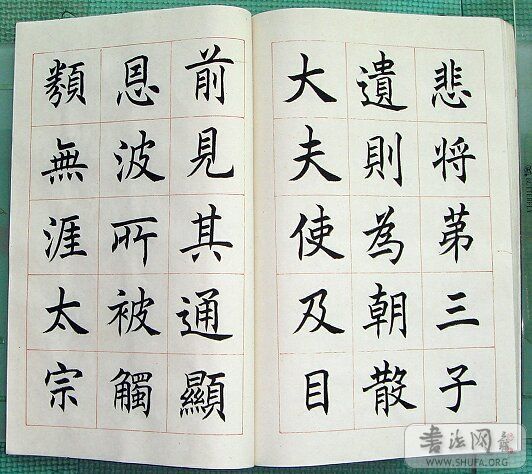 悲将苐三子
遺則為朝散
大夫使及目
前見其通顯
恩波所被觸
類無涯太宗
书法网
WWW.SHUFA.ORG